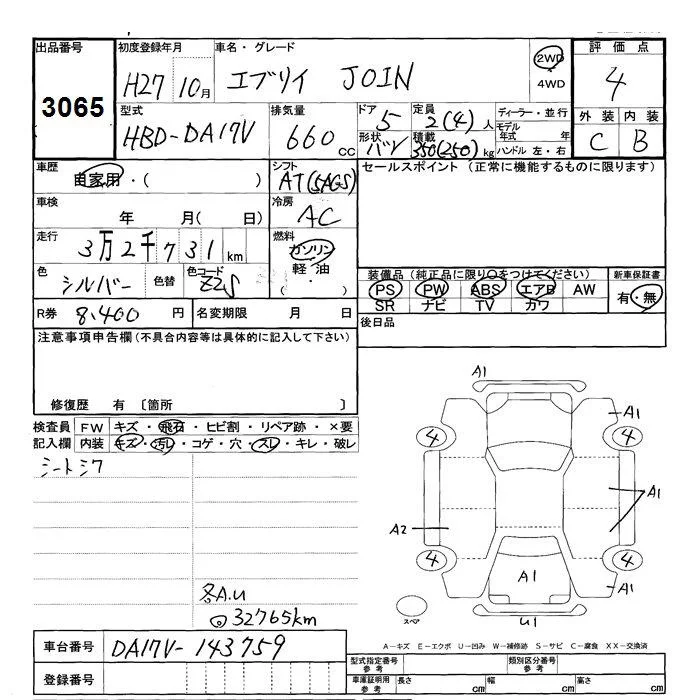 出品番号 初度登録年月 車名・グレード 2WD 4WD 評価点
3065 H27 10月 エブリイ JOIN 4
型式 排気量 ドア 定員 ディーラー・並行 外装 内装
HBD-DA17V 660cc 5 2(4)人 モデル年式 年 C B
形状 バン 積載 350(250)kg ハンドル 左・右
車歴 自家用・( ) シフト AT(5AGS) セールスポイント(正常に機能するものに限ります)
車検 年 月( 日) 冷房 AC
走行 3万2千731km 燃料 ガソリン 軽油 ( ・ )
色 シルバー 色替 色コード Z2S
装備品(純正品に限り○をつけてください) 新車保証書
PS PW ABS エアB AW 有・無
SR ナビ TV カワ
R券 8,400円 名変期限 月 日 後日品
注意事項申告欄(不具合内容等は具体的に記入して下さい)
修復歴 有 〔箇所 〕
検査員 FW キズ・飛石・ヒビ割・リペア跡・×要
記入欄 内装 キズ・汚レ・コゲ・穴・スレ・キレ・破レ
シートシワ
A1
A1
4 4
A1
A2
4 4
A1
A1
U1
スペア
各A.U
32765km
A-キズ E-エクボ U-凹み W-補修跡 S-サビ C-腐食 XX-交換済
車台番号 DA17V-143759
登録番号
型式指定番号 参考 類別区分番号 参考
車庫証明用 参考 長さ cm 幅 cm 高さ cm